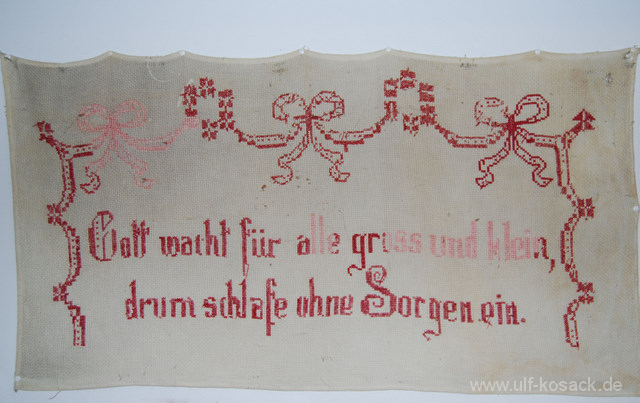 Gott wacht für alle gross und klein,
drum schlafe ohne Sorgen ein.
www.ulf-kosack.de